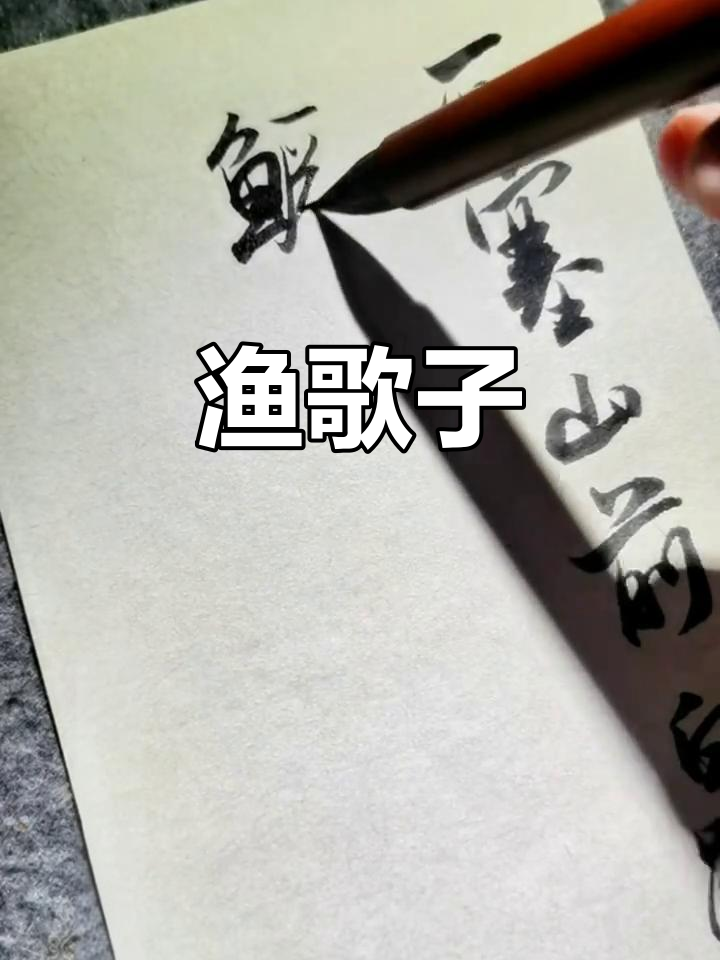 塞山前白
渔歌子